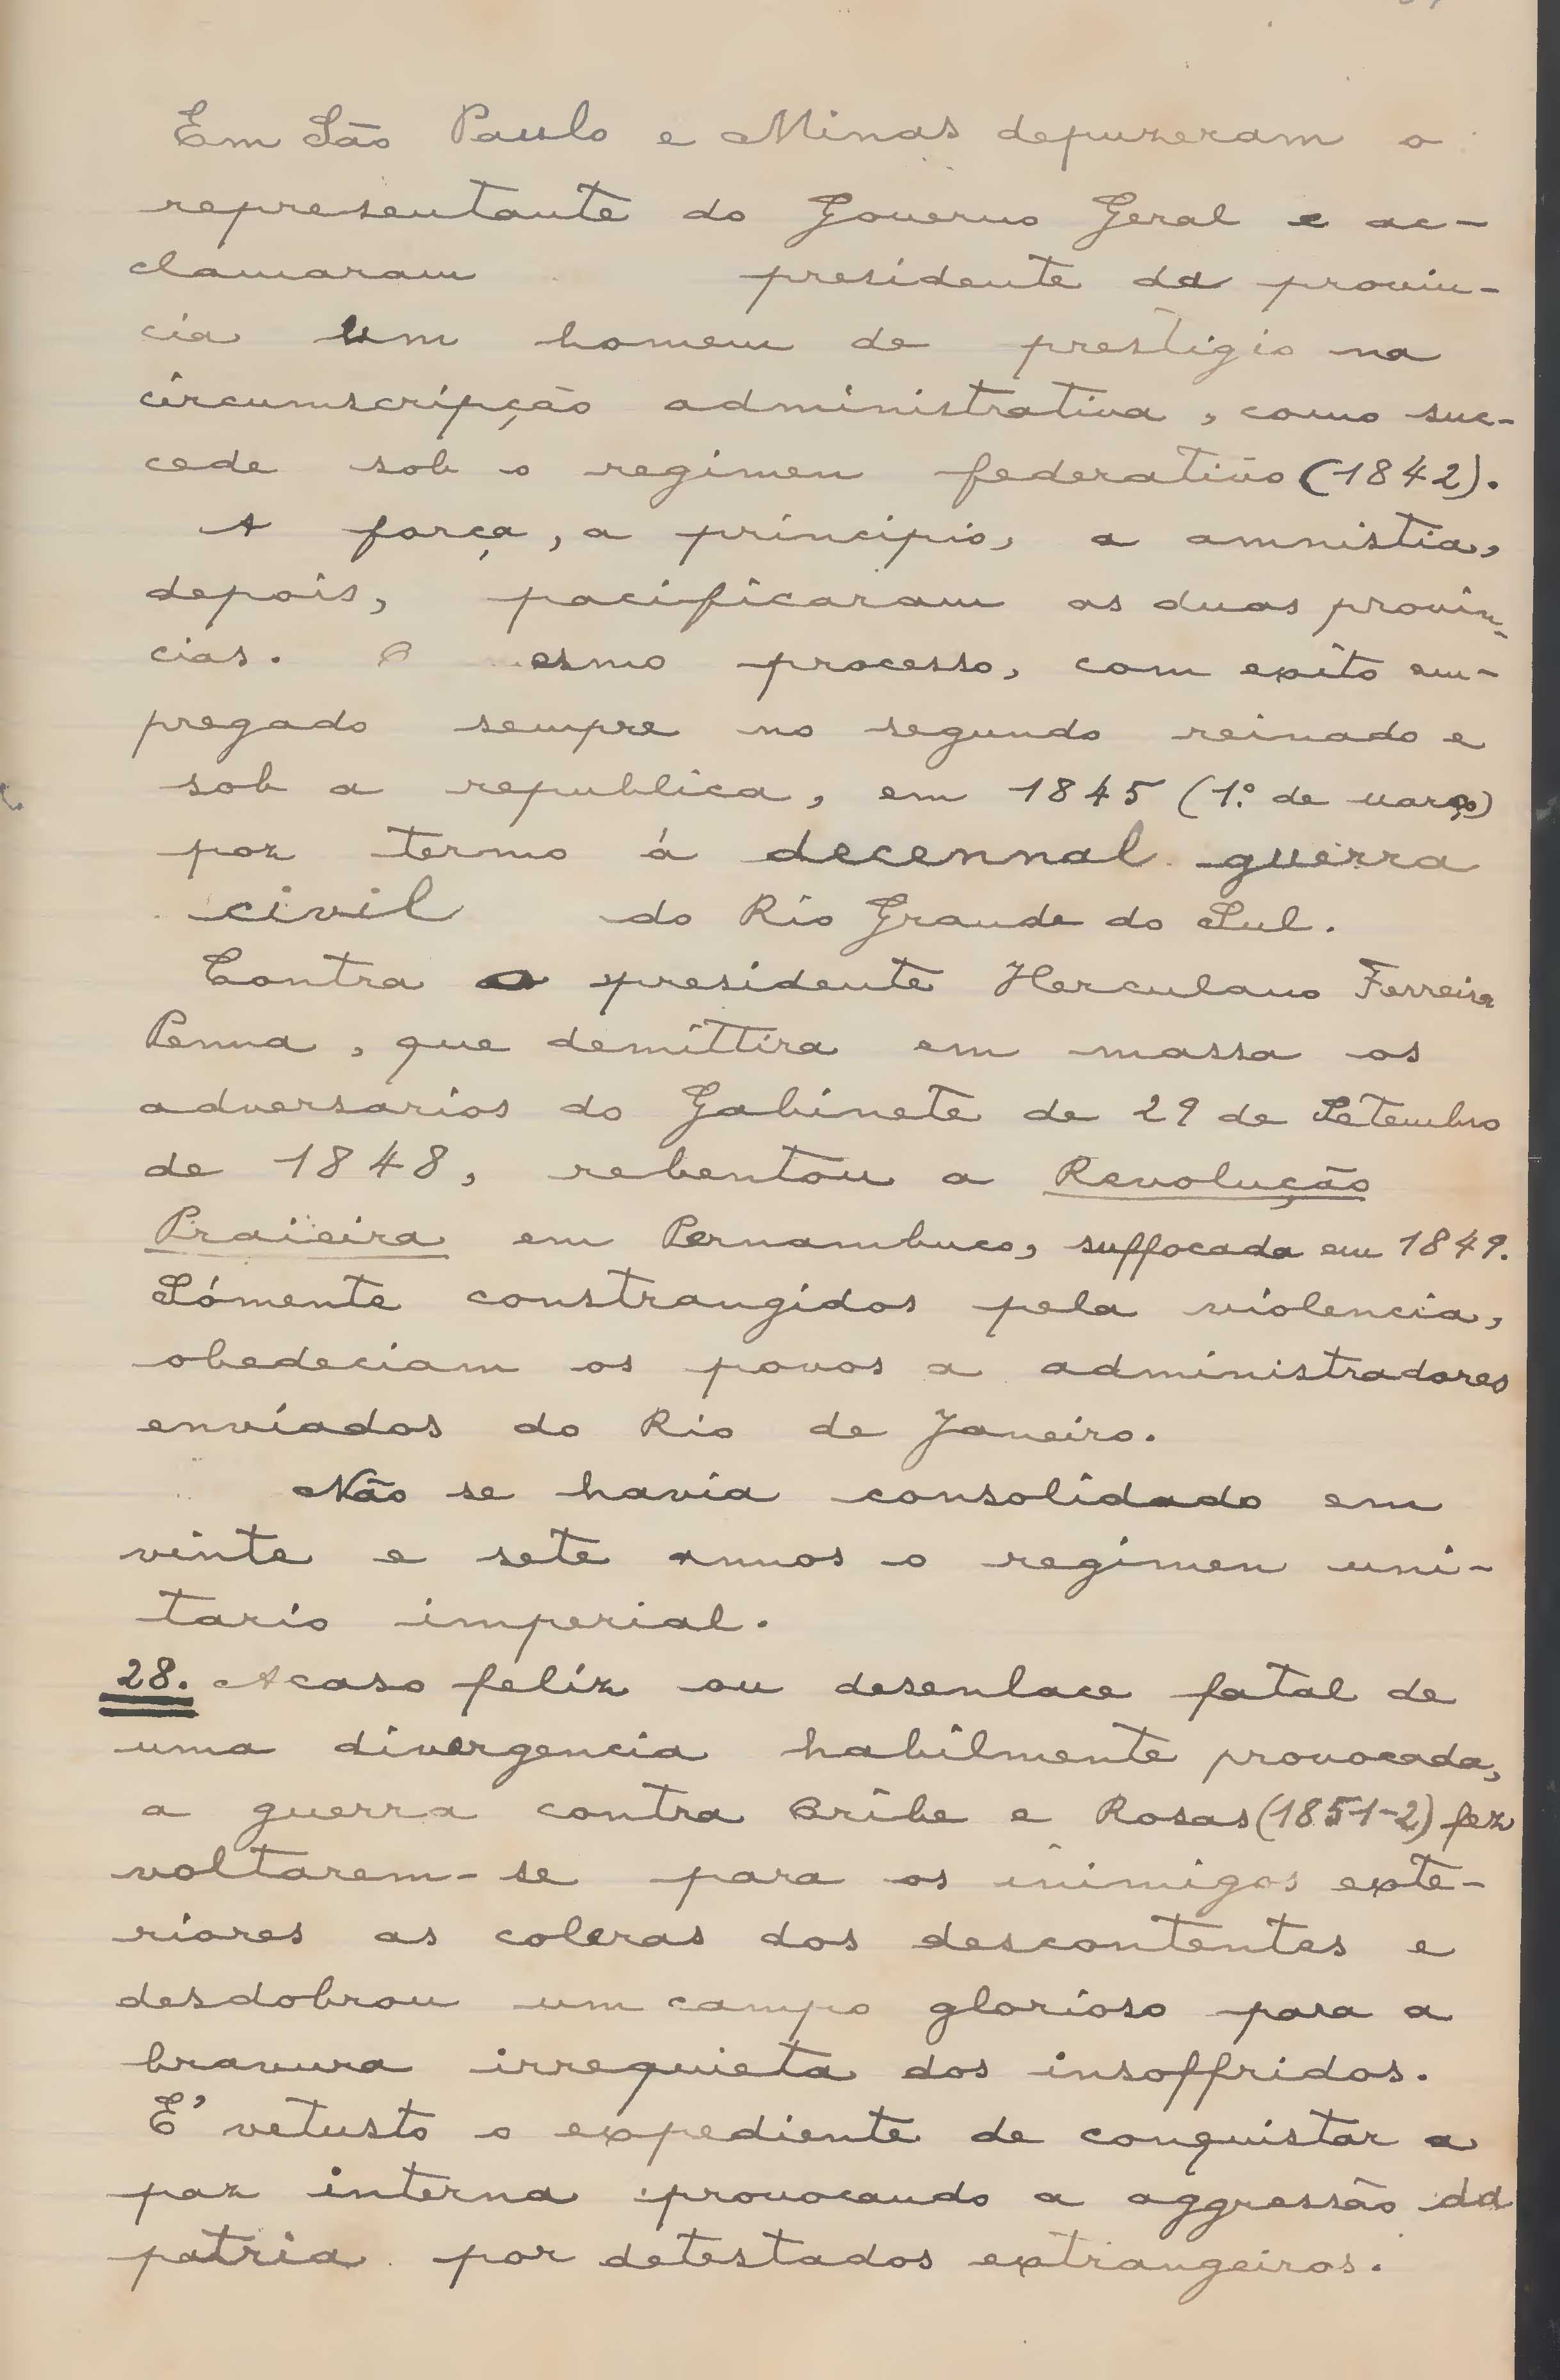 Em São Paulo e Minas depuzeram o
representante do Governo Geral e ac-
clamaram presidente da provin-
cia um homem de prestigio na
circumscripção administrativa, como suc-
cede sob o regimen federativo (1842).
A força, a principio, a amnistia,
depois, pacificaram as duas provin-
cias. O esmo processo, com exito em-
pregado sempre no segundo reinado e
sob a republica, em 1845 (1º de março)
poz termo á decennal guerra
civil do Rio Grande do Sul.
Contra o presidente Herculano Ferreira
Penna, que demittira em massa os
adversarios do Gabinete de 29 de Setembro
de 1848, rebentou a Revolução
Praieira em Pernambuco, suffocada em 1849.
Sómente constrangidos pela violencia,
obedeciam os povos a administradores
enviados do Rio de Janeiro.
Não se havia consolidado em
vinte e sete annos o regimen uni-
tario imperial.
28. Acaso feliz ou desenlace fatal de
uma divergencia habilmente provocada,
a guerra contra Oribe e Rosas (1851-2) fez
voltarem-se para os inimigos exte-
riores as coleras dos descontentes e
desdobrou um campo glorioso para a
bravura irrequieta dos insoffridos.
E' vetusto o expediente de conquistar a
paz interna provocando a aggressão da
patria por detestados extrangeiros.